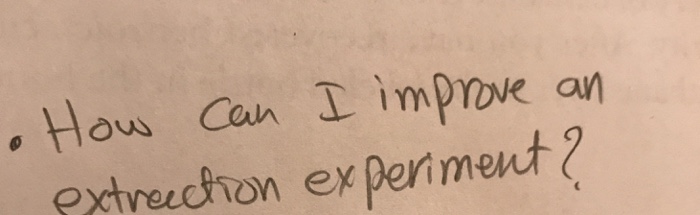 • How can I improve an
extraction experiment?